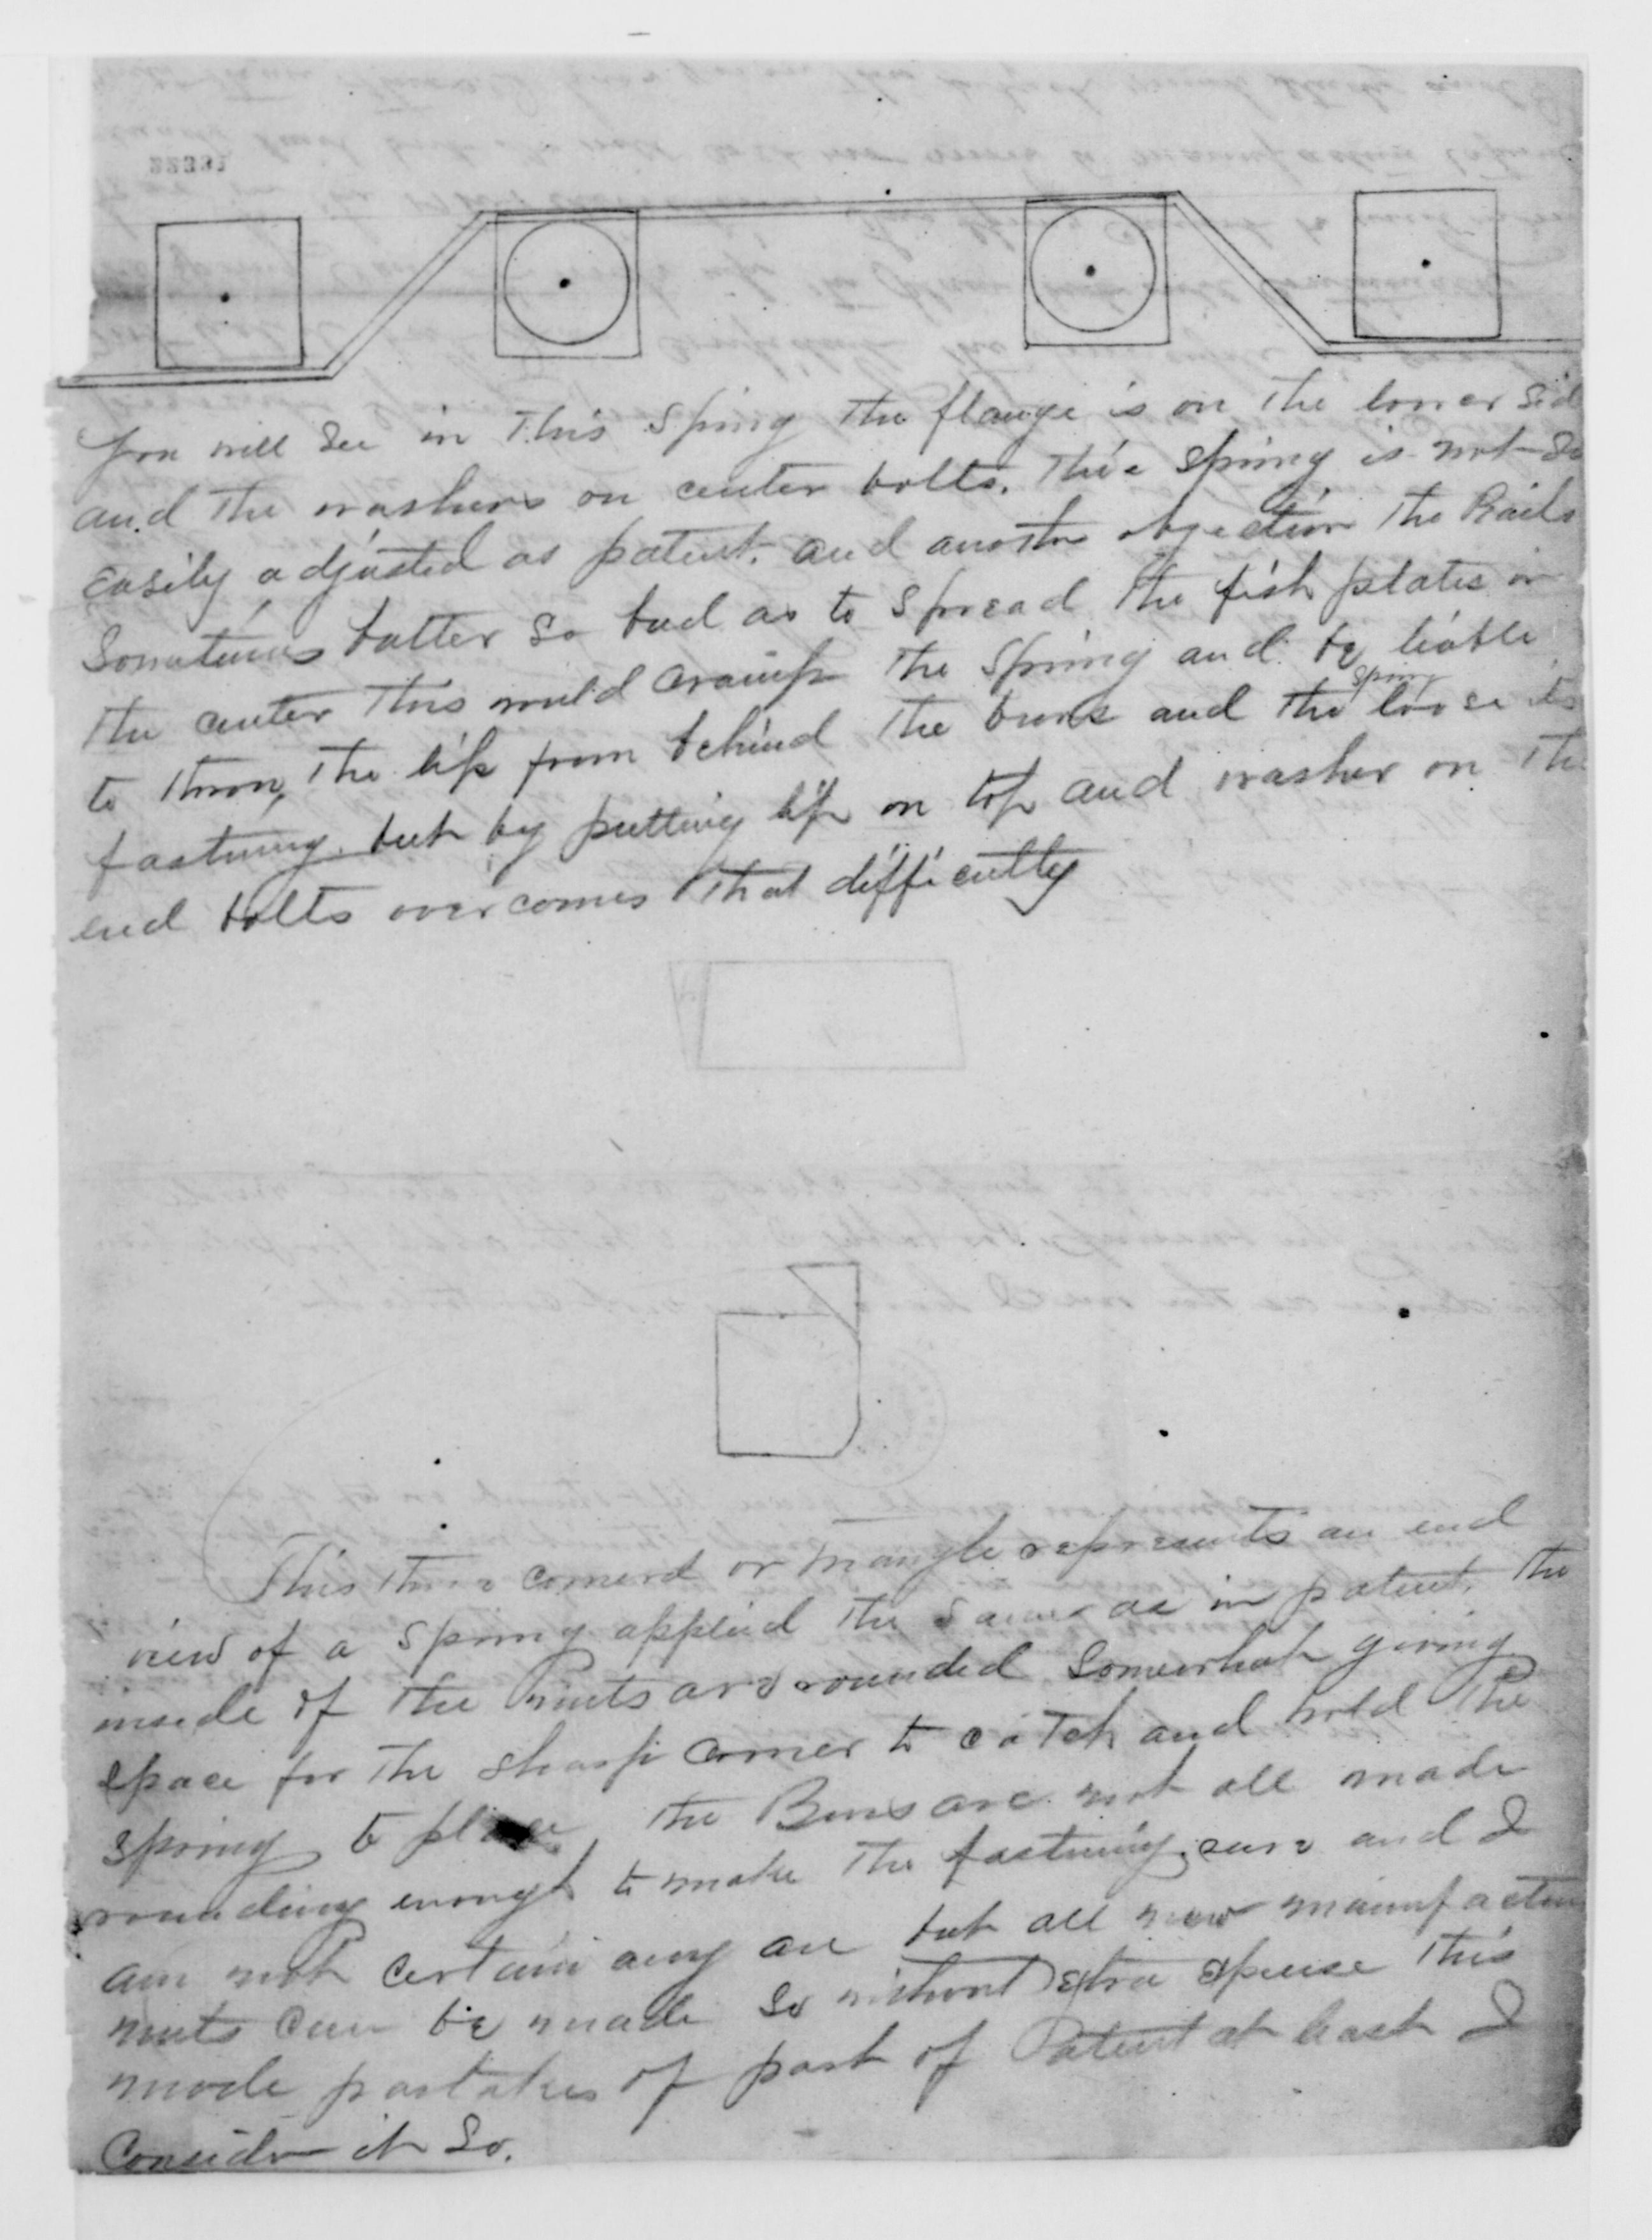 You will see in this Spring the flange is on the lower Sid
and the washers on center bolts. this spring is not So
easily adjusted as patent. and another objection the Rails
Sometimes batter So bad as to Spread the fish plates in
the center this would cramp the Spring and be liable
to throw, the lip from behind the burs and the spring loose its
fastning. but by putting lip on top and washer on the
end bolts overcomes that difficulty
This three cornerd or triangle represents an end
view of a Spring applied the Same as in patent. the
inside of the nuts are rounded Somewhat giving
space for the sharp corner to catch and hold the
spring to place the Burs are not all made
rounding enough to make the fastning sure and I
am not certain any are but all new manufactur
nuts can be made So without extra expense this
mode partakes of part of Patent at least I
Consider it So.